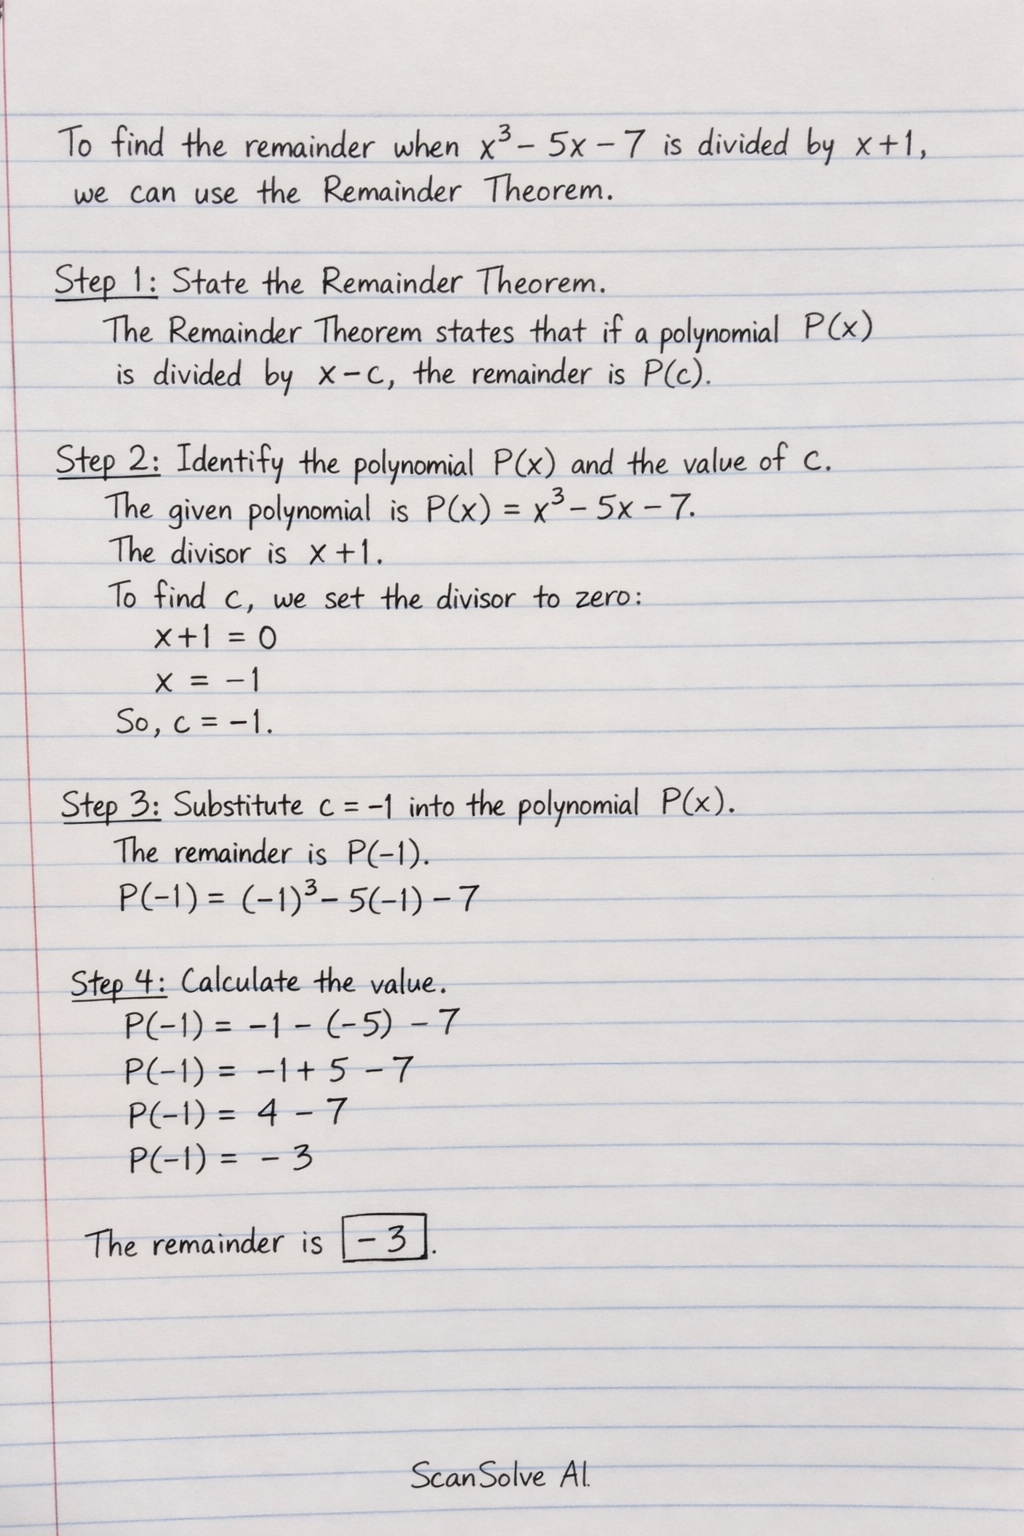 To find the remainder when x³ - 5x - 7 is divided by x+1,
we can use the Remainder Theorem.
Step 1: State the Remainder Theorem.
The Remainder Theorem states that if a polynomial P(x)
is divided by x-c, the remainder is P(c).
Step 2: Identify the polynomial P(x) and the value of c.
The given polynomial is P(x) = x³ - 5x - 7.
The divisor is x+1.
To find c, we set the divisor to zero:
x+1 = 0
x = -1
So, c = -1.
Step 3: Substitute c = -1 into the polynomial P(x).
The remainder is P(-1).
P(-1) = (-1)³ - 5(-1) - 7
Step 4: Calculate the value.
P(-1) = -1 - (-5) - 7
P(-1) = -1 + 5 - 7
P(-1) = 4 - 7
P(-1) = -3
The remainder is -3.
ScanSolve AI.